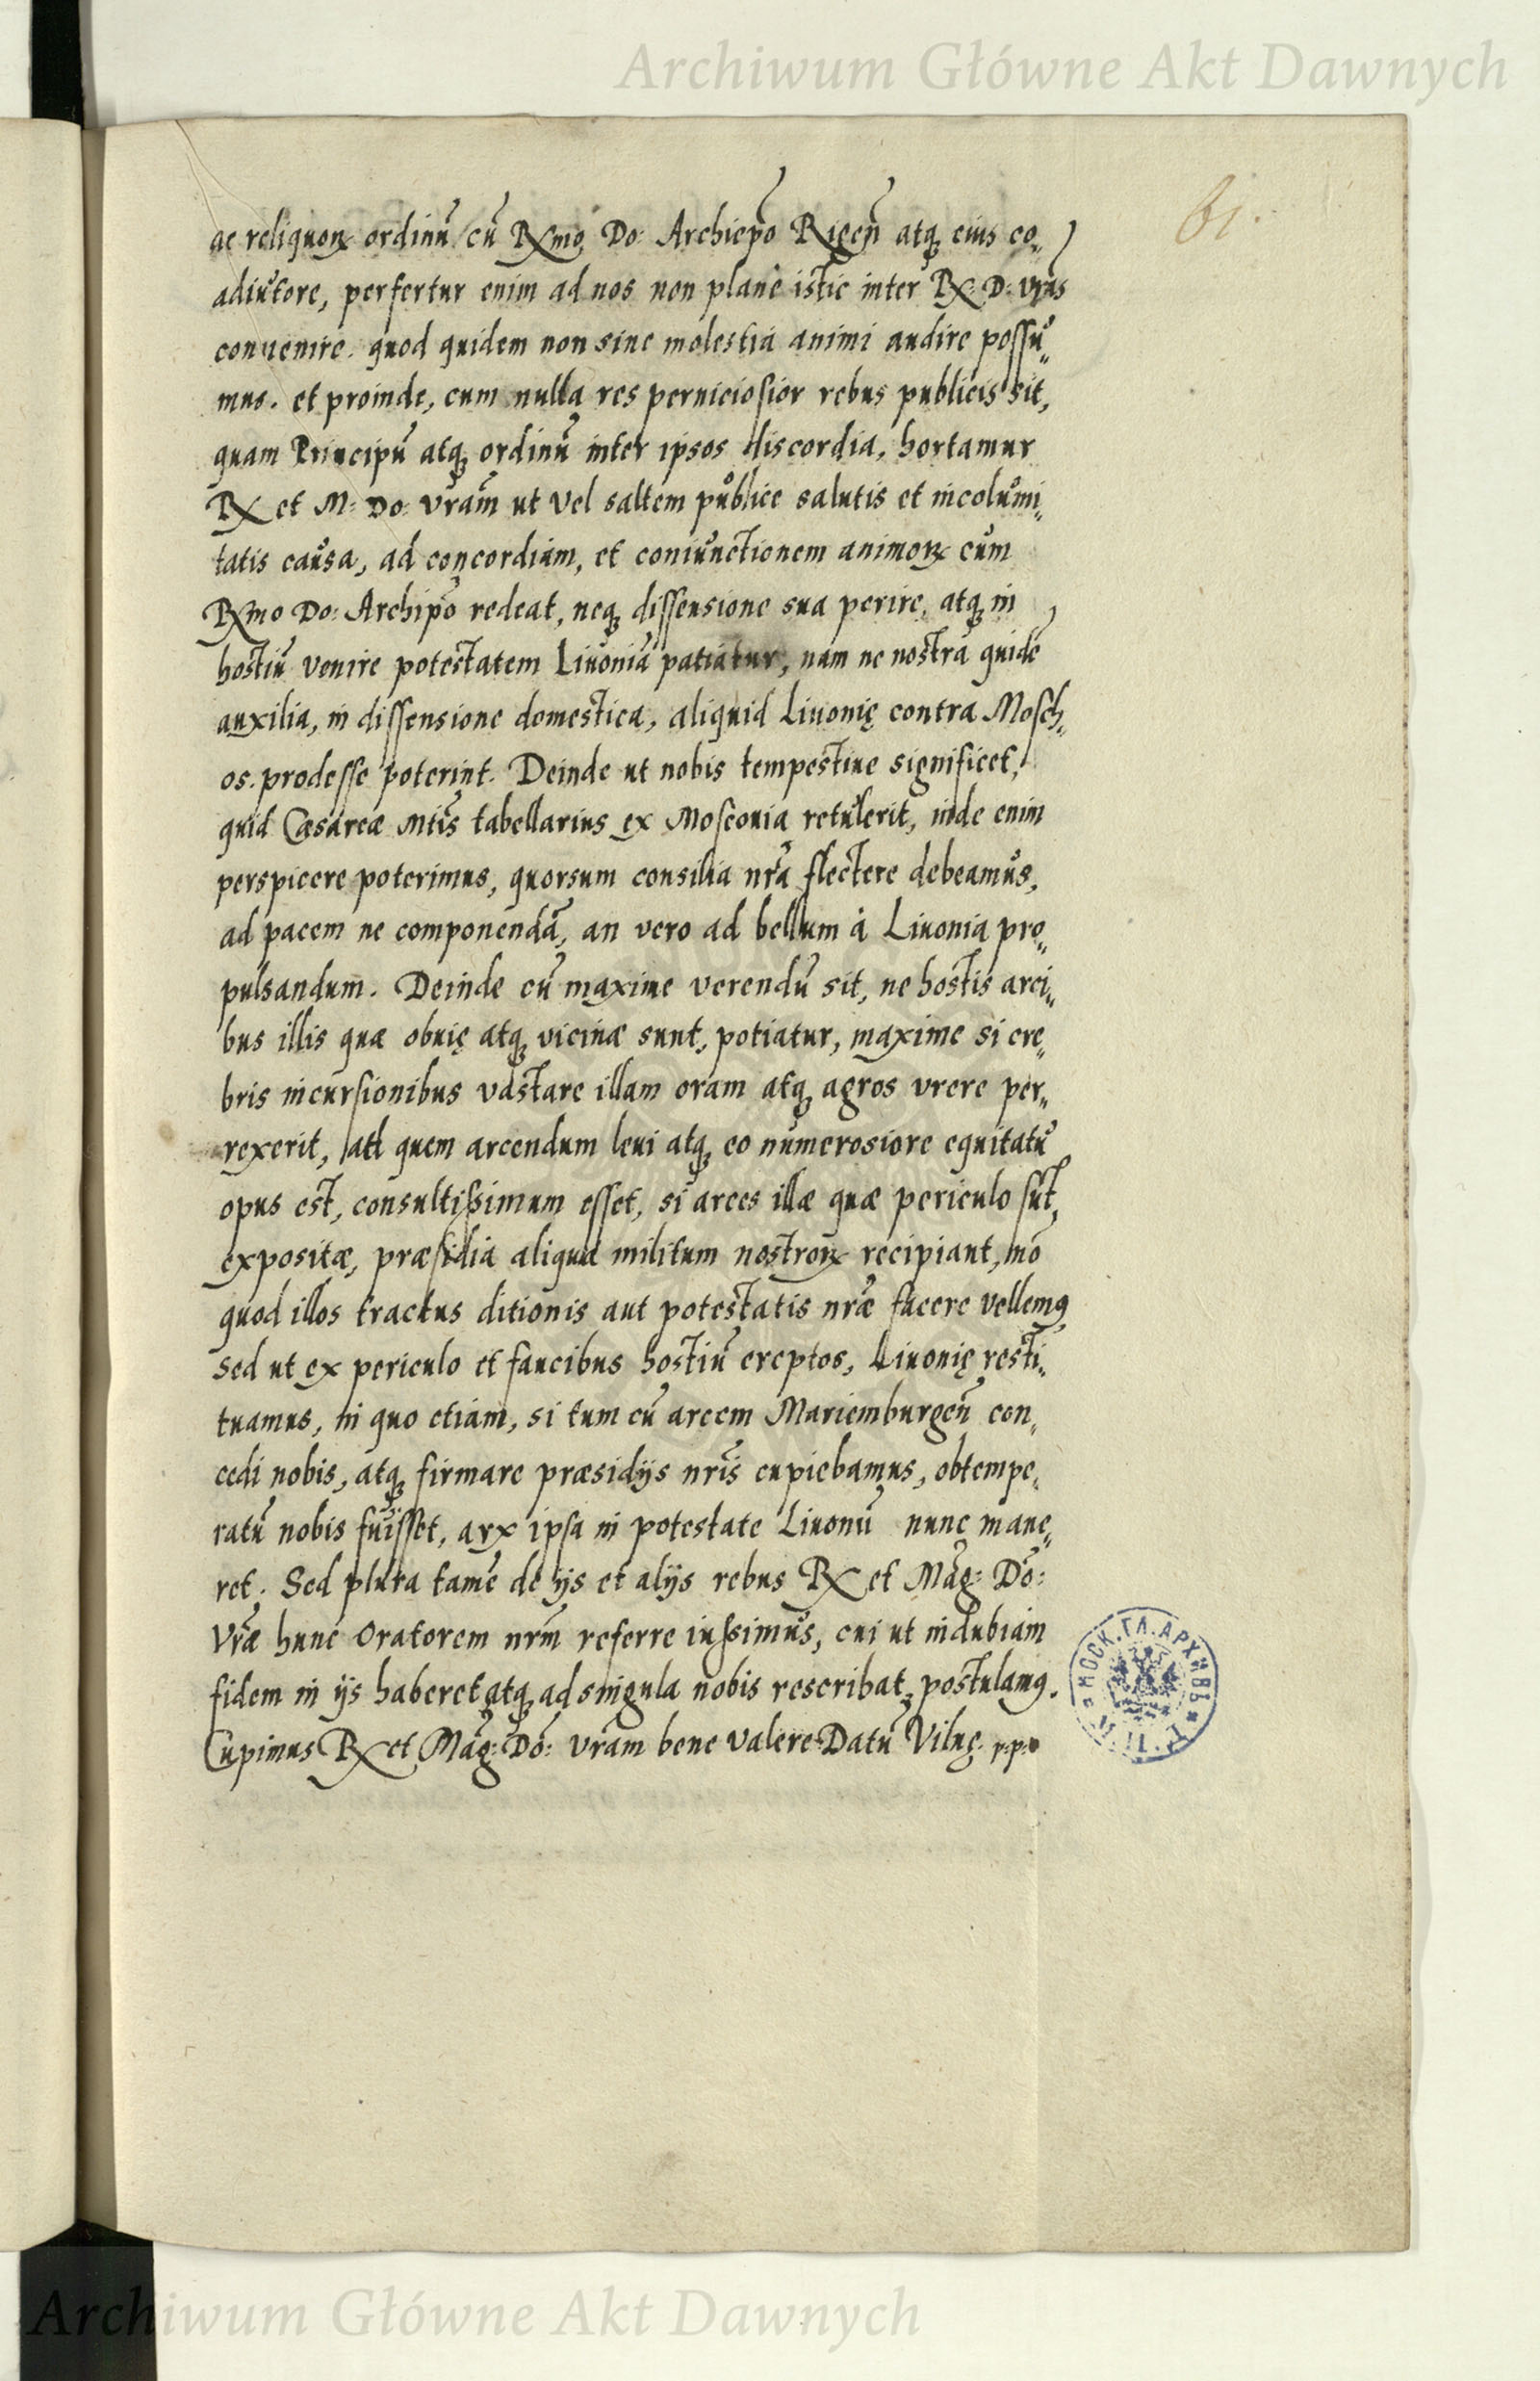 Archiwum Główne Akt Dawnych
61.
ac reliquoꝝ ordinū cū Rx̄mo Do: Archiep̄o Rigen̄ atq̨ eius co„
adiutore, perfertur enim ad nos non plane istic inter Rx D: vr̄as
conuenire. quod quidem non sine molestia animi audire possu„
mus. et proinde, cum nulla res perniciosior rebus publicis sit,
quam Principū atq̨ ordinū inter ipsos discordia, hortamur
Rx et M: Do: vr̄am ut vel saltem publice salutis et incolumi„
tatis causa, ad concordiam, et coniunctionem animoꝝ cum
Rx̄mo Do: Archip̄o redeat, neq̨ dissensione sua perire, atq̨ in
hostiū venire potestatem Liuoniā patiatur, nam ne nostra quidē
auxilia, in dissensione domestica, aliquid Liuonię contra Mosch„
os. prodesse poterint. Deinde ut nobis tempestiue significet,
quid Cæsareæ Mtīs tabellarius ex Mosconia retulerit, inde enim
perspicere poterimus, quorsum consilia nr̄a flectere debeamus,
ad pacem ne componendā, an vero ad bellum à Liuonia pro„
pulsandum. Deinde cū maxime verendū sit, ne hostis arci„
bus illis quæ obuię atq̨ vicinæ sunt, potiatur, maxime si cre„
bris incursionibus vastare illam oram atq̨ agros vrere per„
rexerit, ad quem arcendum leui atq̨ eo numerosiore equitatu
opus est, consultißimum esset, si arces illæ quæ periculo sūt
expositæ, præsidia aliqua militum nostroꝝ recipiant, nō
quod illos tractus ditionis aut potestatis nr̄æ facere vellemꝰ
sed ut ex periculo et faucibus hostiū ereptos, Liuonię resti„
tuamus, in quo etiam, si tum cū arcem Mariemburgen̄ con„
cedi nobis, atq̨ firmare præsidijs nr̄is cupiebamus, obtempe„
ratū nobis fuisset, arx ipsa in potestate Liuonū nunc mane„
ret. Sed plura tamē de ijs et alijs rebus Rx et Mag: Do:
Vr̄æ hunc Oratorem nr̄m referre iußimus, cui ut indubiam
fidem in ijs haberet atq̨ ad singula nobis rescribat, postulamꝰ.
Cupimus Rx et Mag: Do: vr̄am bene valere Datū Vilnę. p:p:
МОСК. ГЛ. АРХИВЪ
М. И. Д.
Archiwum Główne Akt Dawnych